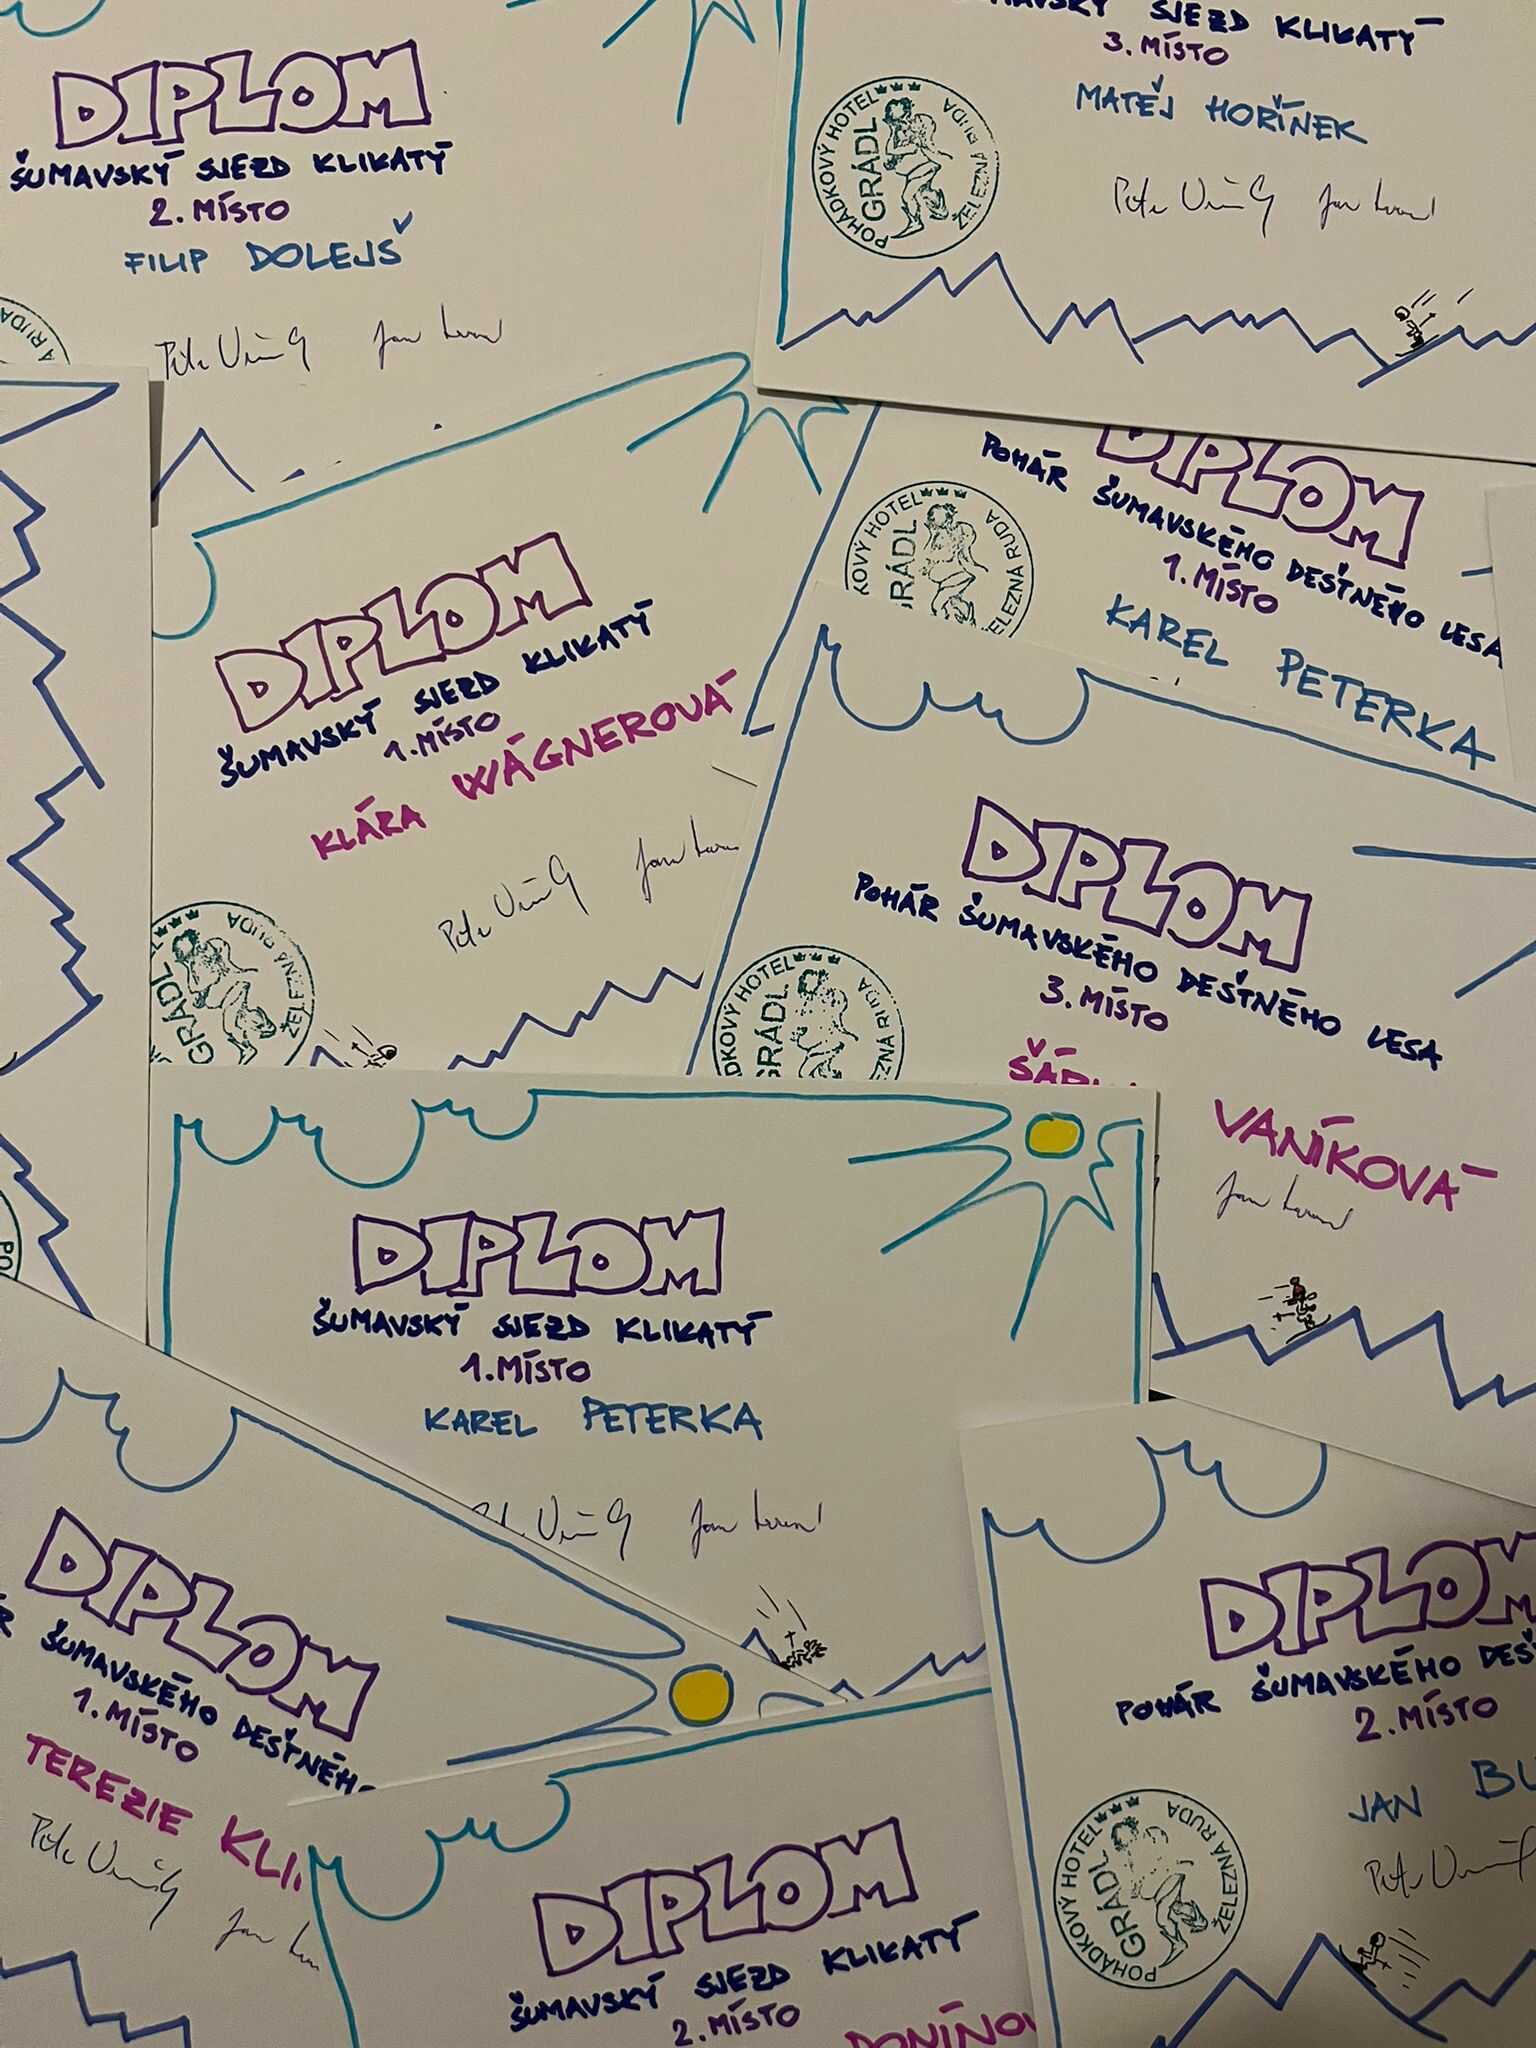 DIPLOM
ŠUMAVSKÝ SJEZD KLIKATÝ
2. MÍSTO
FILIP DOLEJŠ
A RUDA
ŠUMAVSKÝ SJEZD KLIKATÝ
3. MÍSTO
MATĚJ HOŘÍNEK
POHÁDKOVÝ HOTEL
GRÁDL
ŽELEZNÁ RUDA
DIPLOM
POHÁR ŠUMAVSKÉHO DEŠTNÉHO LESA
1. MÍSTO
KAREL PETERKA
KOVÝ HOTEL
GRÁDL
ELEZNÁ RUDA
DIPLOM
ŠUMAVSKÝ SJEZD KLIKATÝ
1. MÍSTO
KLÁRA WÁGNEROVÁ
GRÁDL
ŽELEZNÁ RUDA
DIPLOM
POHÁR ŠUMAVSKÉHO DEŠTNÉHO LESA
3. MÍSTO
VANÍKOVÁ
DKOVÝ HOTEL
GRÁDL
ZNÁ RUDA
DIPLOM
ŠUMAVSKÝ SJEZD KLIKATÝ
1. MÍSTO
KAREL PETERKA
PO
DIPLOM
ŠUMAVSKÉHO DEŠTNÉHO
1. MÍSTO
TEREZIE KLI
DIPLOM
POHÁR ŠUMAVSKÉHO DEŠ
2. MÍSTO
JAN BU
POHÁDKOVÝ HOTEL
GRÁDL
ŽELEZNÁ RUDA
DIPLOM
ŠUMAVSKÝ SJEZD KLIKATÝ
2. MÍSTO